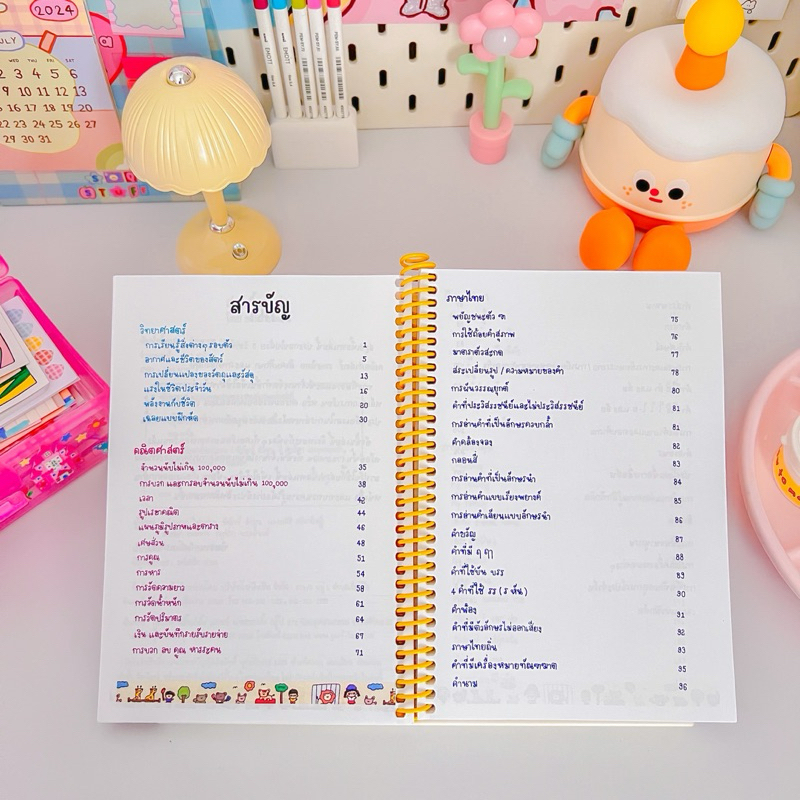 2024
JULY
2 3 4 5 6
9 10 11 12 13
16 17 18 19 20
22 23 24 25 26 27
29 30 31
สารบัญ
วิทยาศาสตร์
การเรียนรู้สิ่งต่างๆ รอบตัว 1
อากาศและชีวิตของสัตว์ 5
การเปลี่ยนแปลงของวัตถุและวัสดุ 13
แรงในชีวิตประจำวัน 16
พลังงานกับชีวิต 20
เฉลยแบบฝึกหัด 30
คณิตศาสตร์
จำนวนนับไม่เกิน 100,000 35
การบวก และการลบจำนวนนับไม่เกิน 100,000 38
เวลา 42
รูปเรขาคณิต 44
แผนภูมิรูปภาพและตาราง 46
เศษส่วน 48
การคูณ 51
การหาร 54
การวัดความยาว 58
การวัดน้ำหนัก 61
การวัดปริมาตร 64
เงิน และบันทึกรายรับรายจ่าย 67
การบวก ลบ คูณ หารระคน 71
ภาษาไทย
พยัญชนะตัว ฑ 75
การใช้ถ้อยคำสุภาพ 76
มาตราตัวสะกด 77
สระเปลี่ยนรูป / ความหมายของคำ 78
การผันวรรณยุกต์ 80
คำที่ประวิสรรชนีย์และไม่ประวิสรรชนีย์ 81
การอ่านคำที่เป็นอักษรควบกล้ำ 81
คำคล้องจอง 82
กลอนสี่ 83
การอ่านคำที่เป็นอักษรนำ 84
การอ่านคำแบบเรียงพยางค์ 85
การอ่านคำเลียนแบบอักษรนำ 86
คำขวัญ 87
คำที่มี ฤ ฤๅ 88
คำที่ใช้บัน บรร 89
4 คำที่ใช้ รร (ร หัน) 90
คำพ้อง 91
คำที่มีตัวอักษรไม่ออกเสียง 92
ภาษาไทยถิ่น 93
คำที่มีเครื่องหมายทัณฑฆาต 95
คำนาม 96